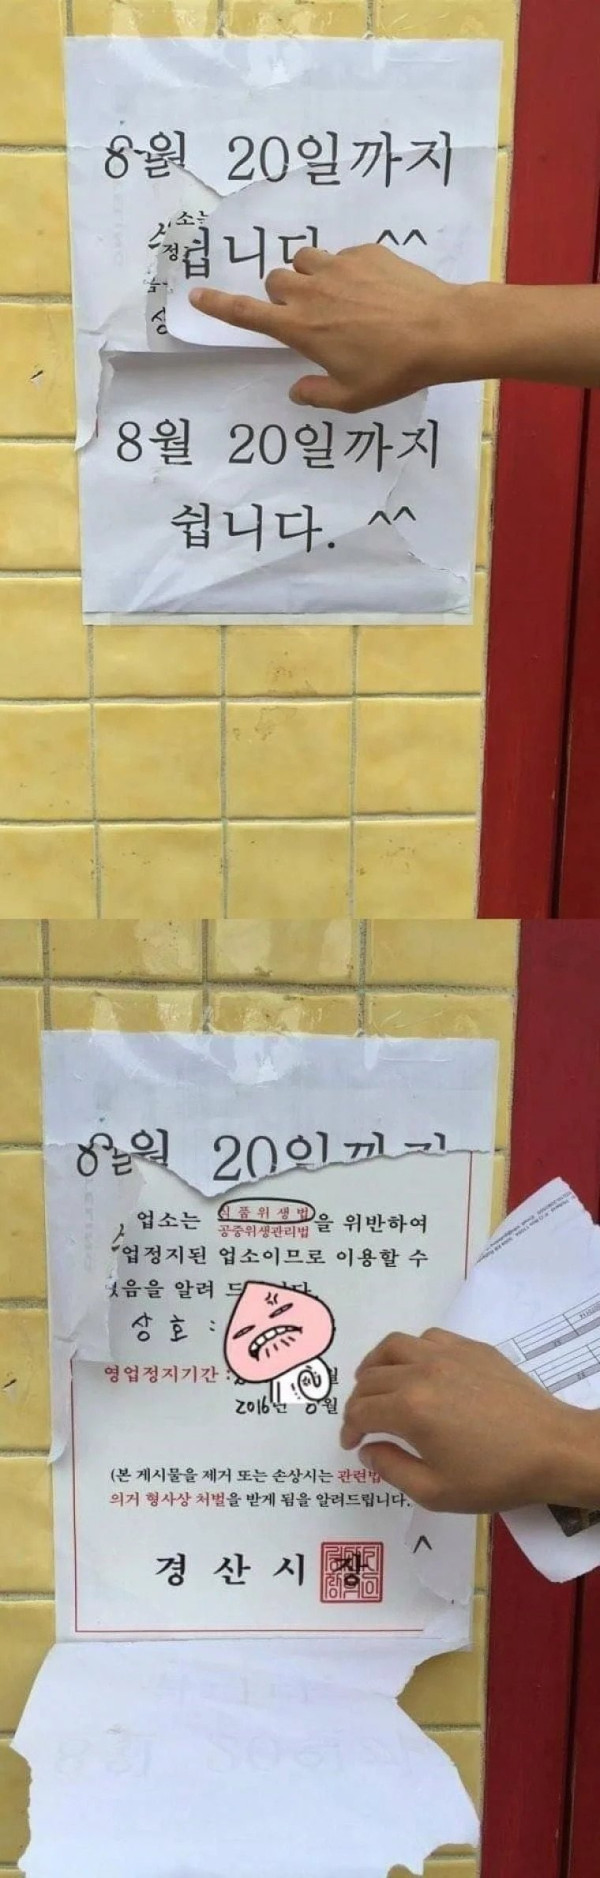 8월 20일까지
소는
정
쉽니다. ^^
8월 20일까지
쉽니다. ^^
8월 20일까지
업소는 식품위생법
공중위생관리법 을 위반하여
업정지된 업소이므로 이용할 수
음을 알려 드
상호 :
영업정지기간 :
2016년 월
(본 게시물을 제거 또는 손상시는 관련법
의거 형사상 처벌을 받게 됨을 알려드립니다.
^
경 산 시 장